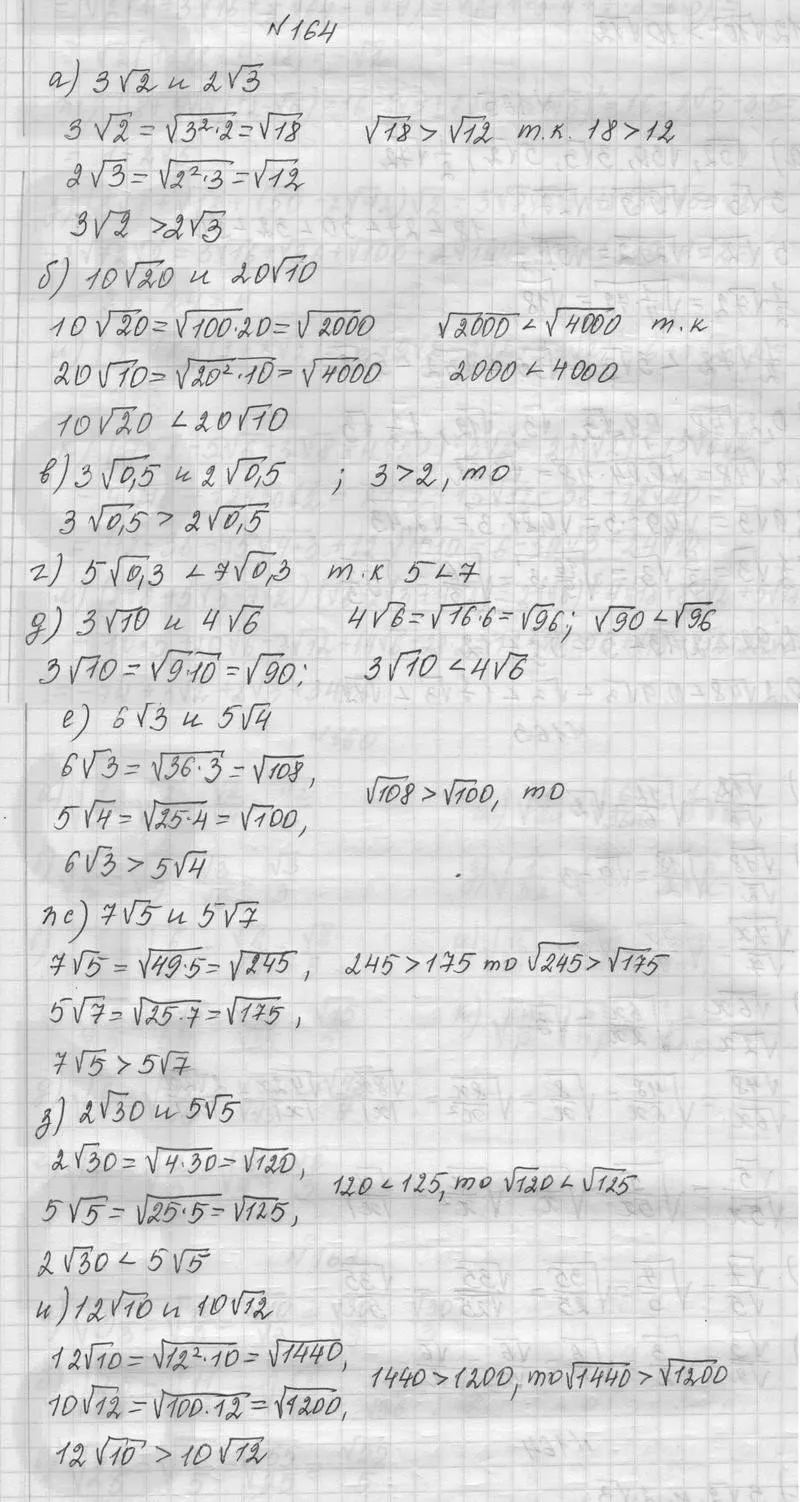 №164
а) 3√2 и 2√3
3√2 = √(3²·2) = √18    √18 > √12 т.к. 18 > 12
2√3 = √(2²·3) = √12
3√2 > 2√3
б) 10√20 и 20√10
10√20 = √(100·20) = √2000    √2000 < √4000 т.к
20√10 = √(20²·10) = √4000    2000 < 4000
10√20 < 20√10
в) 3√0,5 и 2√0,5 ; 3 > 2, то
3√0,5 > 2√0,5
г) 5√0,3 < 7√0,3 т.к 5 < 7
д) 3√10 и 4√6    4√6 = √(16·6) = √96; √90 < √96
3√10 = √(9·10) = √90;    3√10 < 4√6
е) 6√3 и 5√4
6√3 = √(36·3) = √108,
√108 > √100, то
5√4 = √(25·4) = √100,
6√3 > 5√4
ж) 7√5 и 5√7
7√5 = √(49·5) = √245,    245 > 175 то √245 > √175
5√7 = √(25·7) = √175,
7√5 > 5√7
з) 2√30 и 5√5
2√30 = √(4·30) = √120,
120 < 125, то √120 < √125
5√5 = √(25·5) = √125,
2√30 < 5√5
и) 12√10 и 10√12
12√10 = √(12²·10) = √1440,
1440 > 1200, то √1440 > √1200
10√12 = √(100·12) = √1200,
12√10 > 10√12